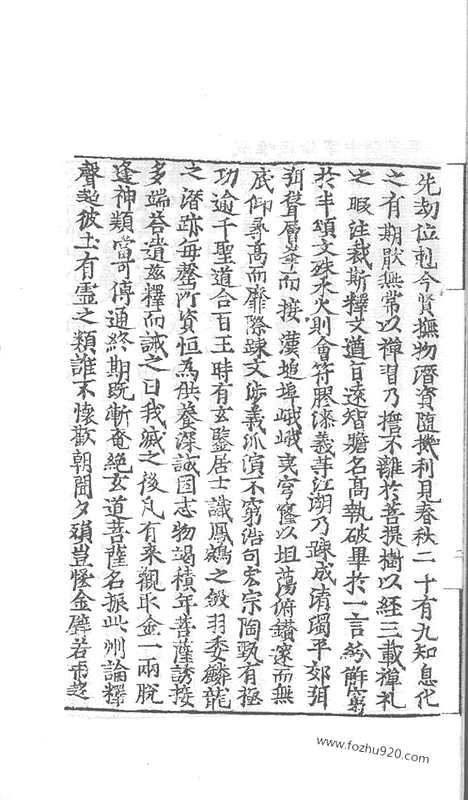 先劫位剋今賢撫物潛資隨機利見春秋二十有九知息化
之有期猒無常以禪習乃擔不離於菩提樹以經三載禪礼
之暇注裁斯釋文道日遠智瞻名高執破畢於一言紛解窮
於半頌文殊水火則會符膠漆義等江湖乃疎成清濁平郊弭
弭聳層峯而接漢塠埠峨峨夷穹窿以坦蕩俯鑽邃而無
底仰尋高而靡際疎文涉義派演不窮浩句宏宗陶甄有極
功逾千聖道合百王時有玄鑒居士識鳳鵷之斂羽委麟龍
之潛跡每罄所資恒為供養深誠固志物竭積年菩薩誘接
多端荅遺茲釋而誡之曰我滅之後凡有来觀取金一兩脫
逢神類當可傳通終期既漸奄絕玄道菩薩名振此州論釋
聲超彼土有靈之類誰不懷歡朝聞夕殞豈恡金璧若市趍
www.fozhu920.com